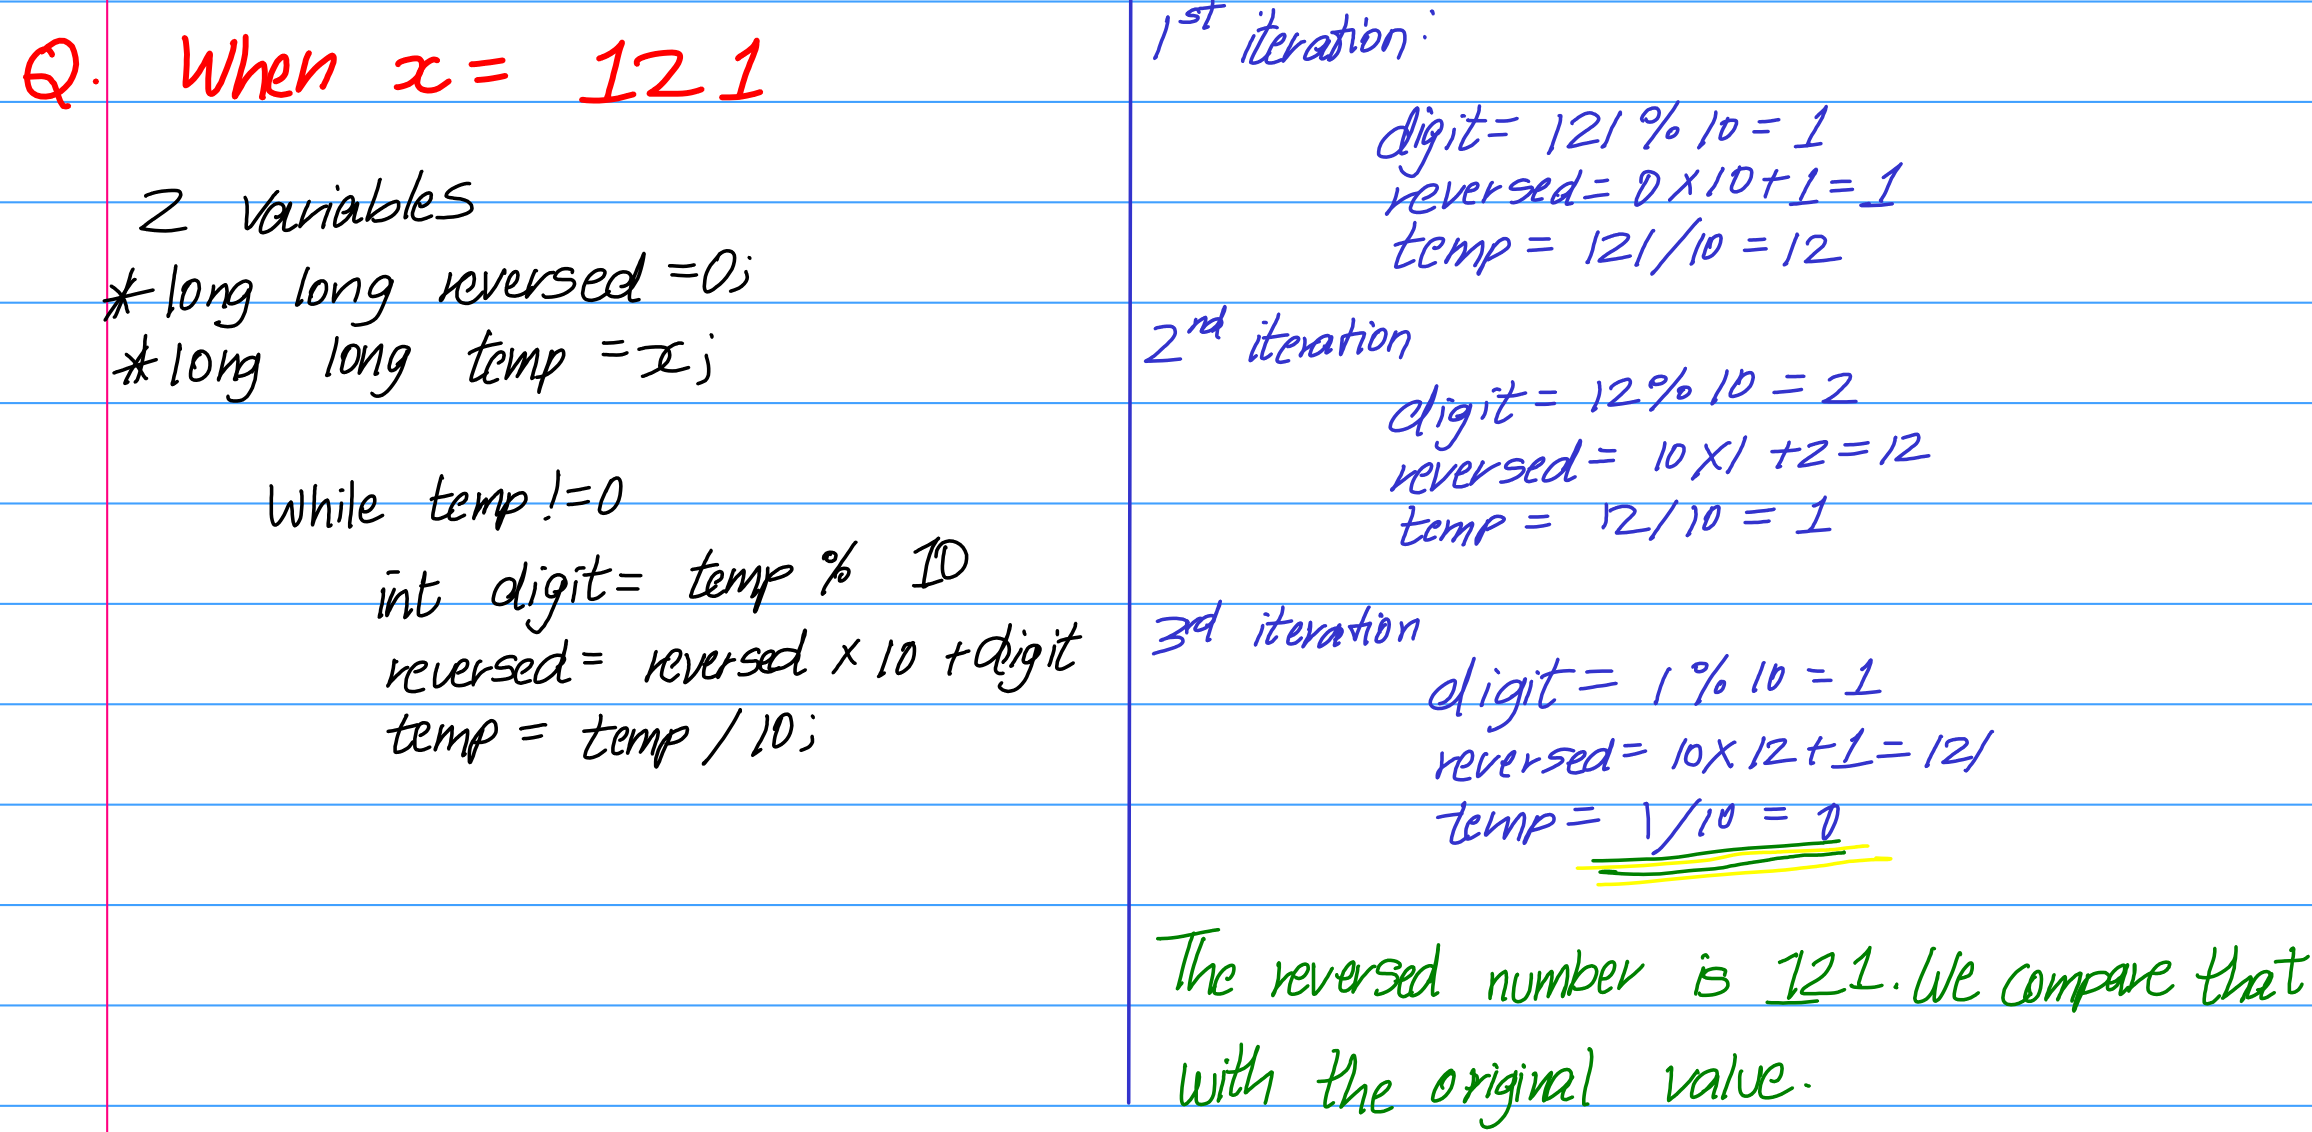 Q. When x = 121
2 variables
* long long reversed = 0;
* long long temp = x;
while temp != 0
int digit = temp % 10
reversed = reversed × 10 + digit
temp = temp / 10;
1st iteration:
digit = 121 % 10 = 1
reversed = 0 × 10 + 1 = 1
temp = 121/10 = 12
2nd iteration
digit = 12 % 10 = 2
reversed = 10 × 1 + 2 = 12
temp = 12/10 = 1
3rd iteration
digit = 1 % 10 = 1
reversed = 10 × 12 + 1 = 121
temp = 1/10 = 0
The reversed number is 121. We compare that
with the original value.